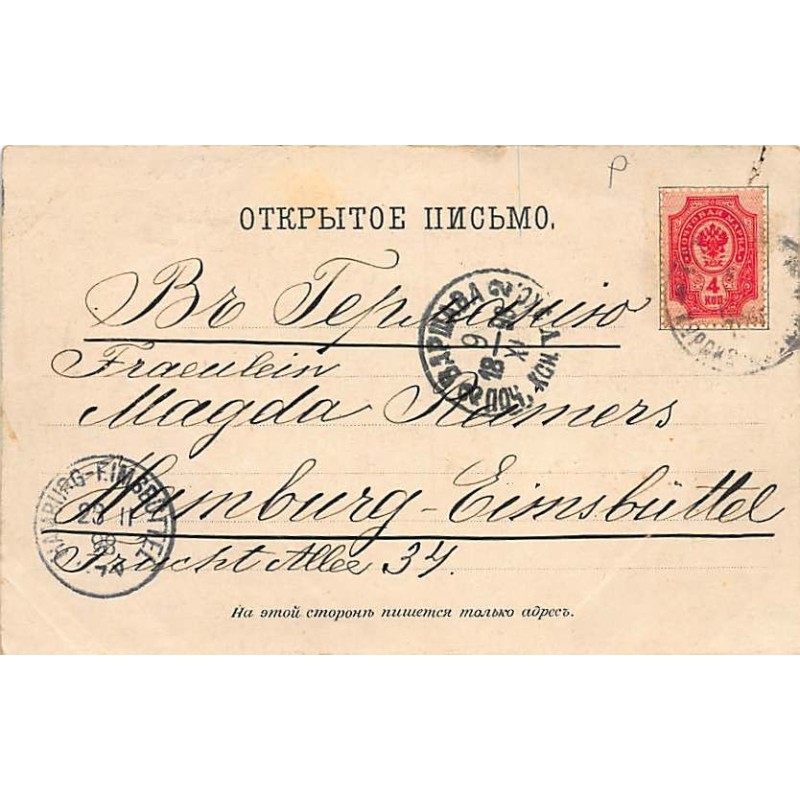 ОТКРЫТОЕ ПИСЬМО.
ПОЧТОВАЯ МАРКА
4
КОП
Въ Германію
ВАРШАВА
Fraeulein
Magda Ramers
HAMBURG-EIMSBÜTTEL
Hamburg-Eimsbüttel
Frucht Allee 34.
На этой сторонѣ пишется только адресъ.